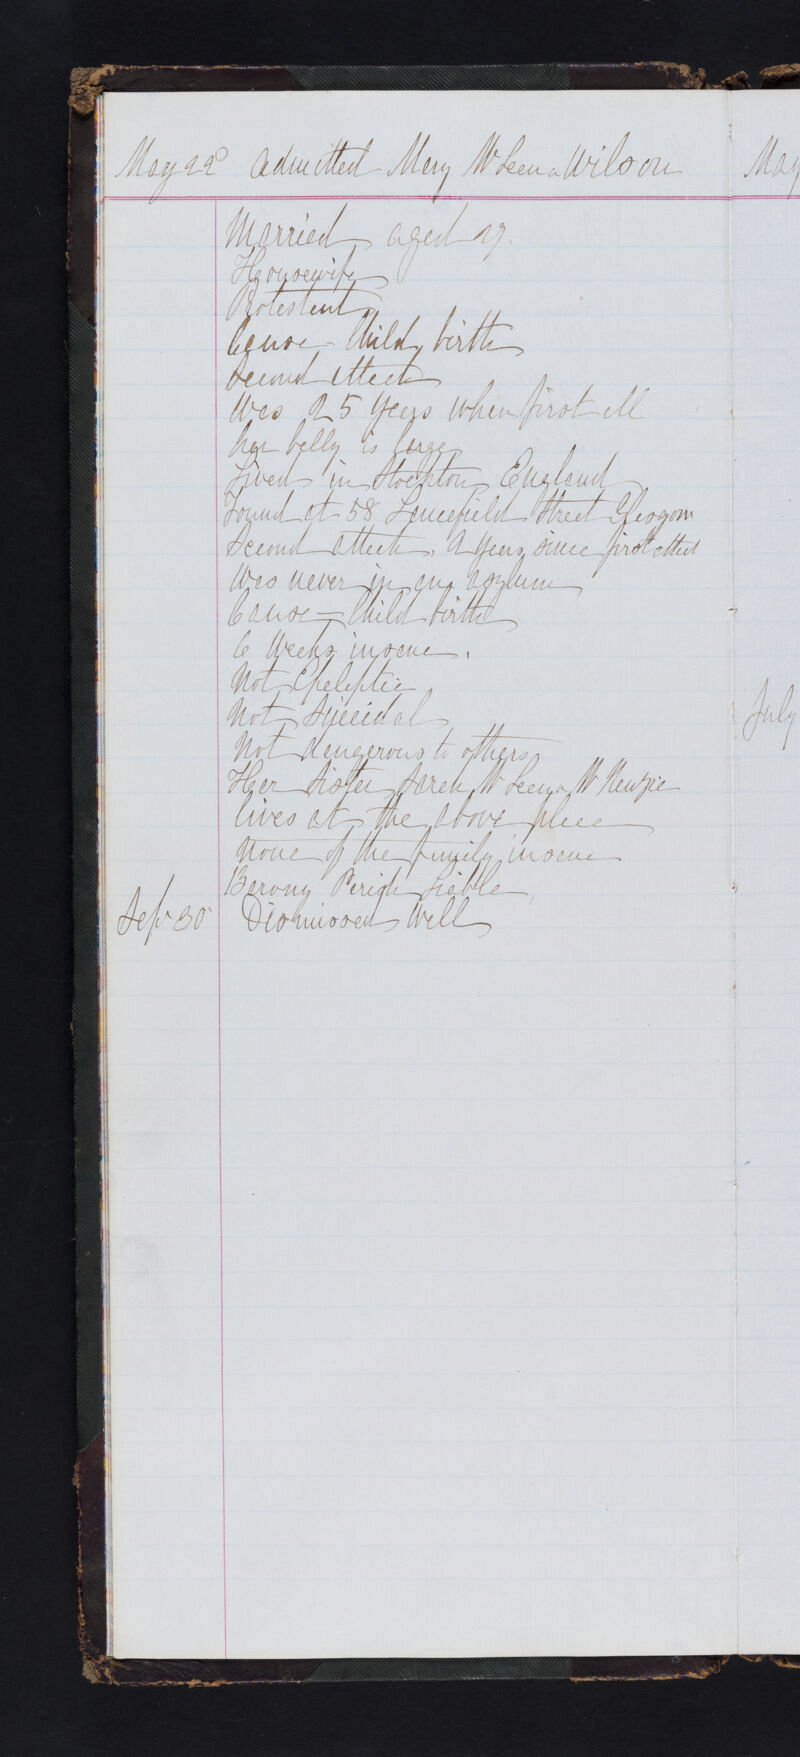 May 22d Admitted Mary McLean or Wilson
May
Married aged 27.
Housewife
Protestant
Cause Child birth
Second attack
Was 25 years when first ill
her belly is large
Lived in Stockton England
Found at 58 Lancefield Street Glasgow
Second attack. 2 years since first attack
Was never in an asylum
Cause – Child birth
6 Weeks insane.
Not Epileptic
Not Suicidal
July
Not dangerous to others
Her Sister Sarah McLean or McKenzie
lives at the above place
None of the family insane
Barony Parish Liable
Sep 30 Dismissed Well